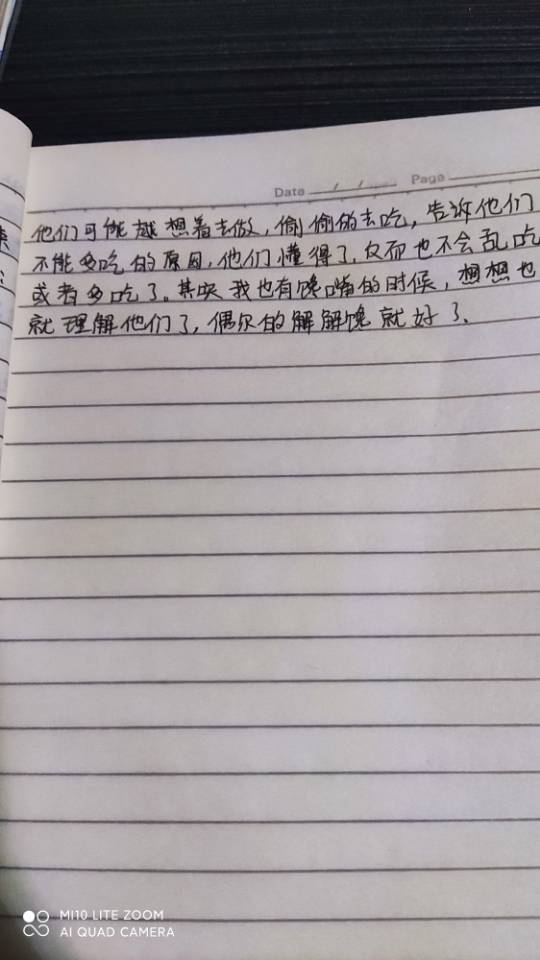 Date / / Page
他们可能越想着去做，偷偷的去吃，告诉他们
不能多吃的原因，他们懂得了，反而也不会乱吃
或者多吃了。其实我也有馋嘴的时候，想想也
就理解他们了，偶尔的解解馋就好了。
MI10 LITE ZOOM
AI QUAD CAMERA